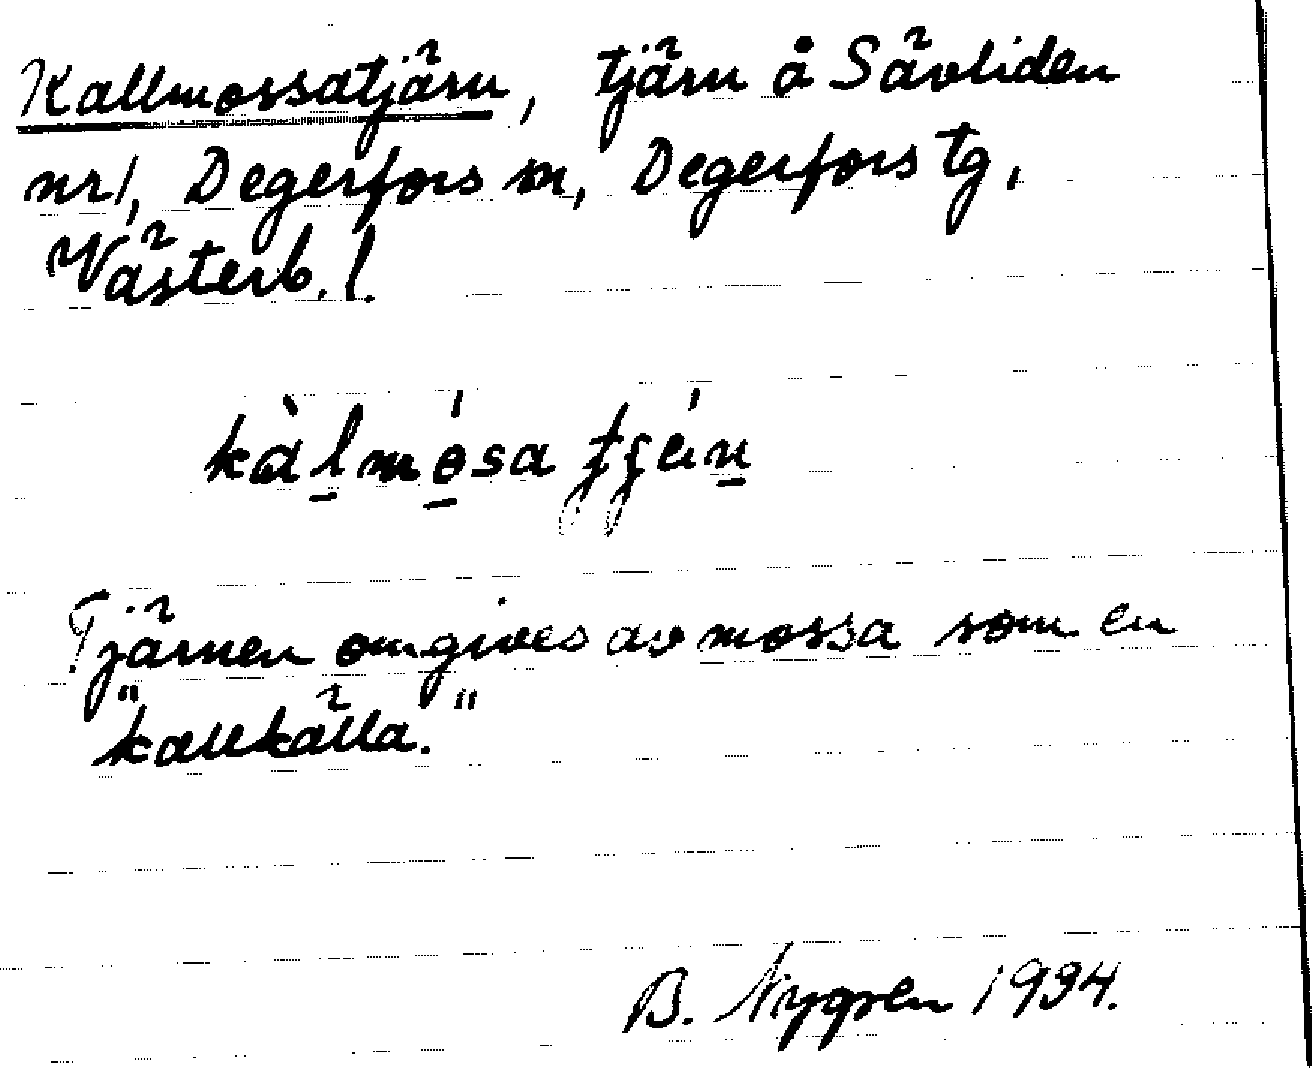 Kallmossatjärn, tjärn å Sävliden
nr 1, Degerfors sn, Degerfors tg,
Västerb. l.
Tjärnen omgives av mossa som en
"kallkälla."
B. Nygren 1934.